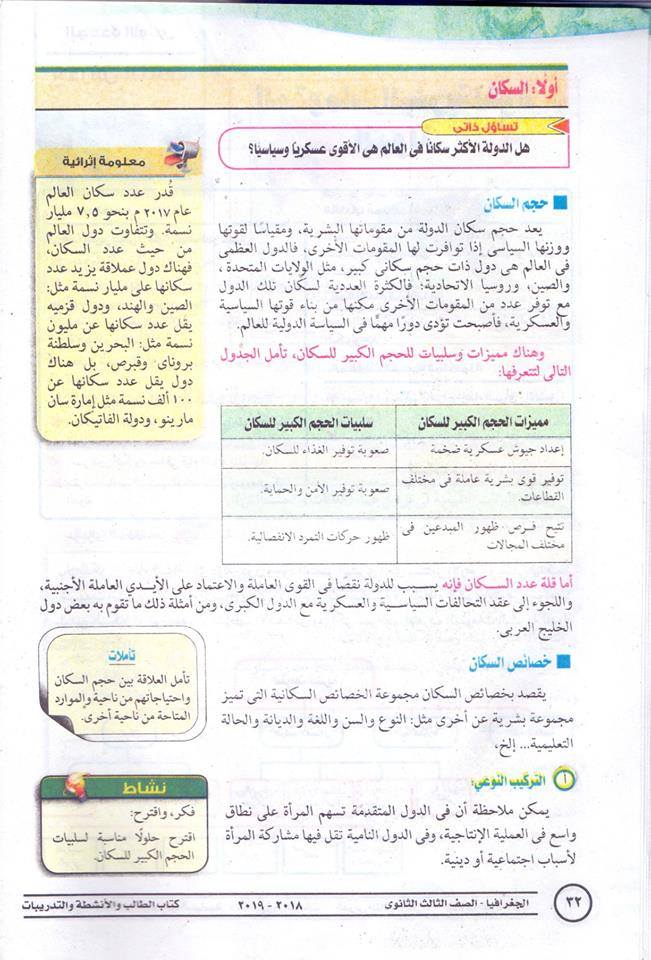 أولًا: السكان
تساؤل ذاتى
هل الدولة الأكثر سكانًا فى العالم هى الأقوى عسكريا وسياسيا؟
حجم السكان
يعد حجم سكان الدولة من مقوماتها البشرية، ومقياسا لقوتها
ووزنها السياسى إذا توافرت لها المقومات الأخرى، فالدول العظمى
فى العالم هى دول ذات حجم سكانى كبير، مثل الولايات المتحدة ،
والصين، وروسيا الاتحادية؛ فالكثرة العددية لسكان تلك الدول
مع توفر عدد من المقومات الأخرى مكنها من بناء قوتها السياسية
والعسكرية، فأصبحت تؤدى دورًا مهمًا فى السياسة الدولية للعالم.
وهناك مميزات وسلبيات للحجم الكبير للسكان، تأمل الجدول
التالى لتتعرفها:
معلومة إثرائية
قُدر عدد سكان العالم
عام ٢٠١٧ م بنحو ٧,٥ مليار
نسمة. وتتفاوت دول العالم
من حيث عدد السكان،
فهناك دول عملاقة يزيد عدد
سكانها على مليار نسمة مثل:
الصين والهند، ودول قزميه
يقل عدد سكانها عن مليون
نسمة مثل: البحرين وسلطنة
بروناى وقبرص، بل هناك
دول يقل عدد سكانها عن
١٠٠ ألف نسمة مثل إمارة سان
مارينو، ودولة الفاتيكان.
مميزات الحجم الكبير للسكان سلبيات الحجم الكبير للسكان
إعداد جيوش عسكرية ضخمة صعوبة توفير الغذاء للسكان.
توفير قوى بشرية عاملة فى مختلف
القطاعات. صعوبة توفير الأمن والحماية.
تتيح فرص ظهور المبدعين فى
مختلف المجالات ظهور حركات التمرد الانفصالية.
أما قلة عدد السكان فإنه يسبب للدولة نقصًا فى القوى العاملة والاعتماد على الأيدي العاملة الأجنبية،
واللجوء إلى عقد التحالفات السياسية والعسكرية مع الدول الكبرى، ومن أمثلة ذلك ما تقوم به بعض دول
الخليج العربى.
خصائص السكان
يقصد بخصائص السكان مجموعة الخصائص السكانية التى تميز
مجموعة بشرية عن أخرى مثل: النوع والسن واللغة والديانة والحالة
التعليمية... إلخ،
تأملات
تأمل العلاقة بين حجم السكان
واحتياجاتهم من ناحية والموارد
المتاحة من ناحية أخرى.
أ التركيب النوعي:
يمكن ملاحظة أن فى الدول المتقدمة تسهم المرأة على نطاق
واسع فى العملية الإنتاجية، وفى الدول النامية تقل فيها مشاركة المرأة
لأسباب اجتماعية أو دينية.
نشاط
فكر، واقترح:
اقترح حلولًا مناسبة لسلبيات
الحجم الكبير للسكان.
٣٢
الجغرافيا - الصف الثالث الثانوى
٢٠١٨ - ٢٠١٩
كتاب الطالب والأنشطة والتدريبات